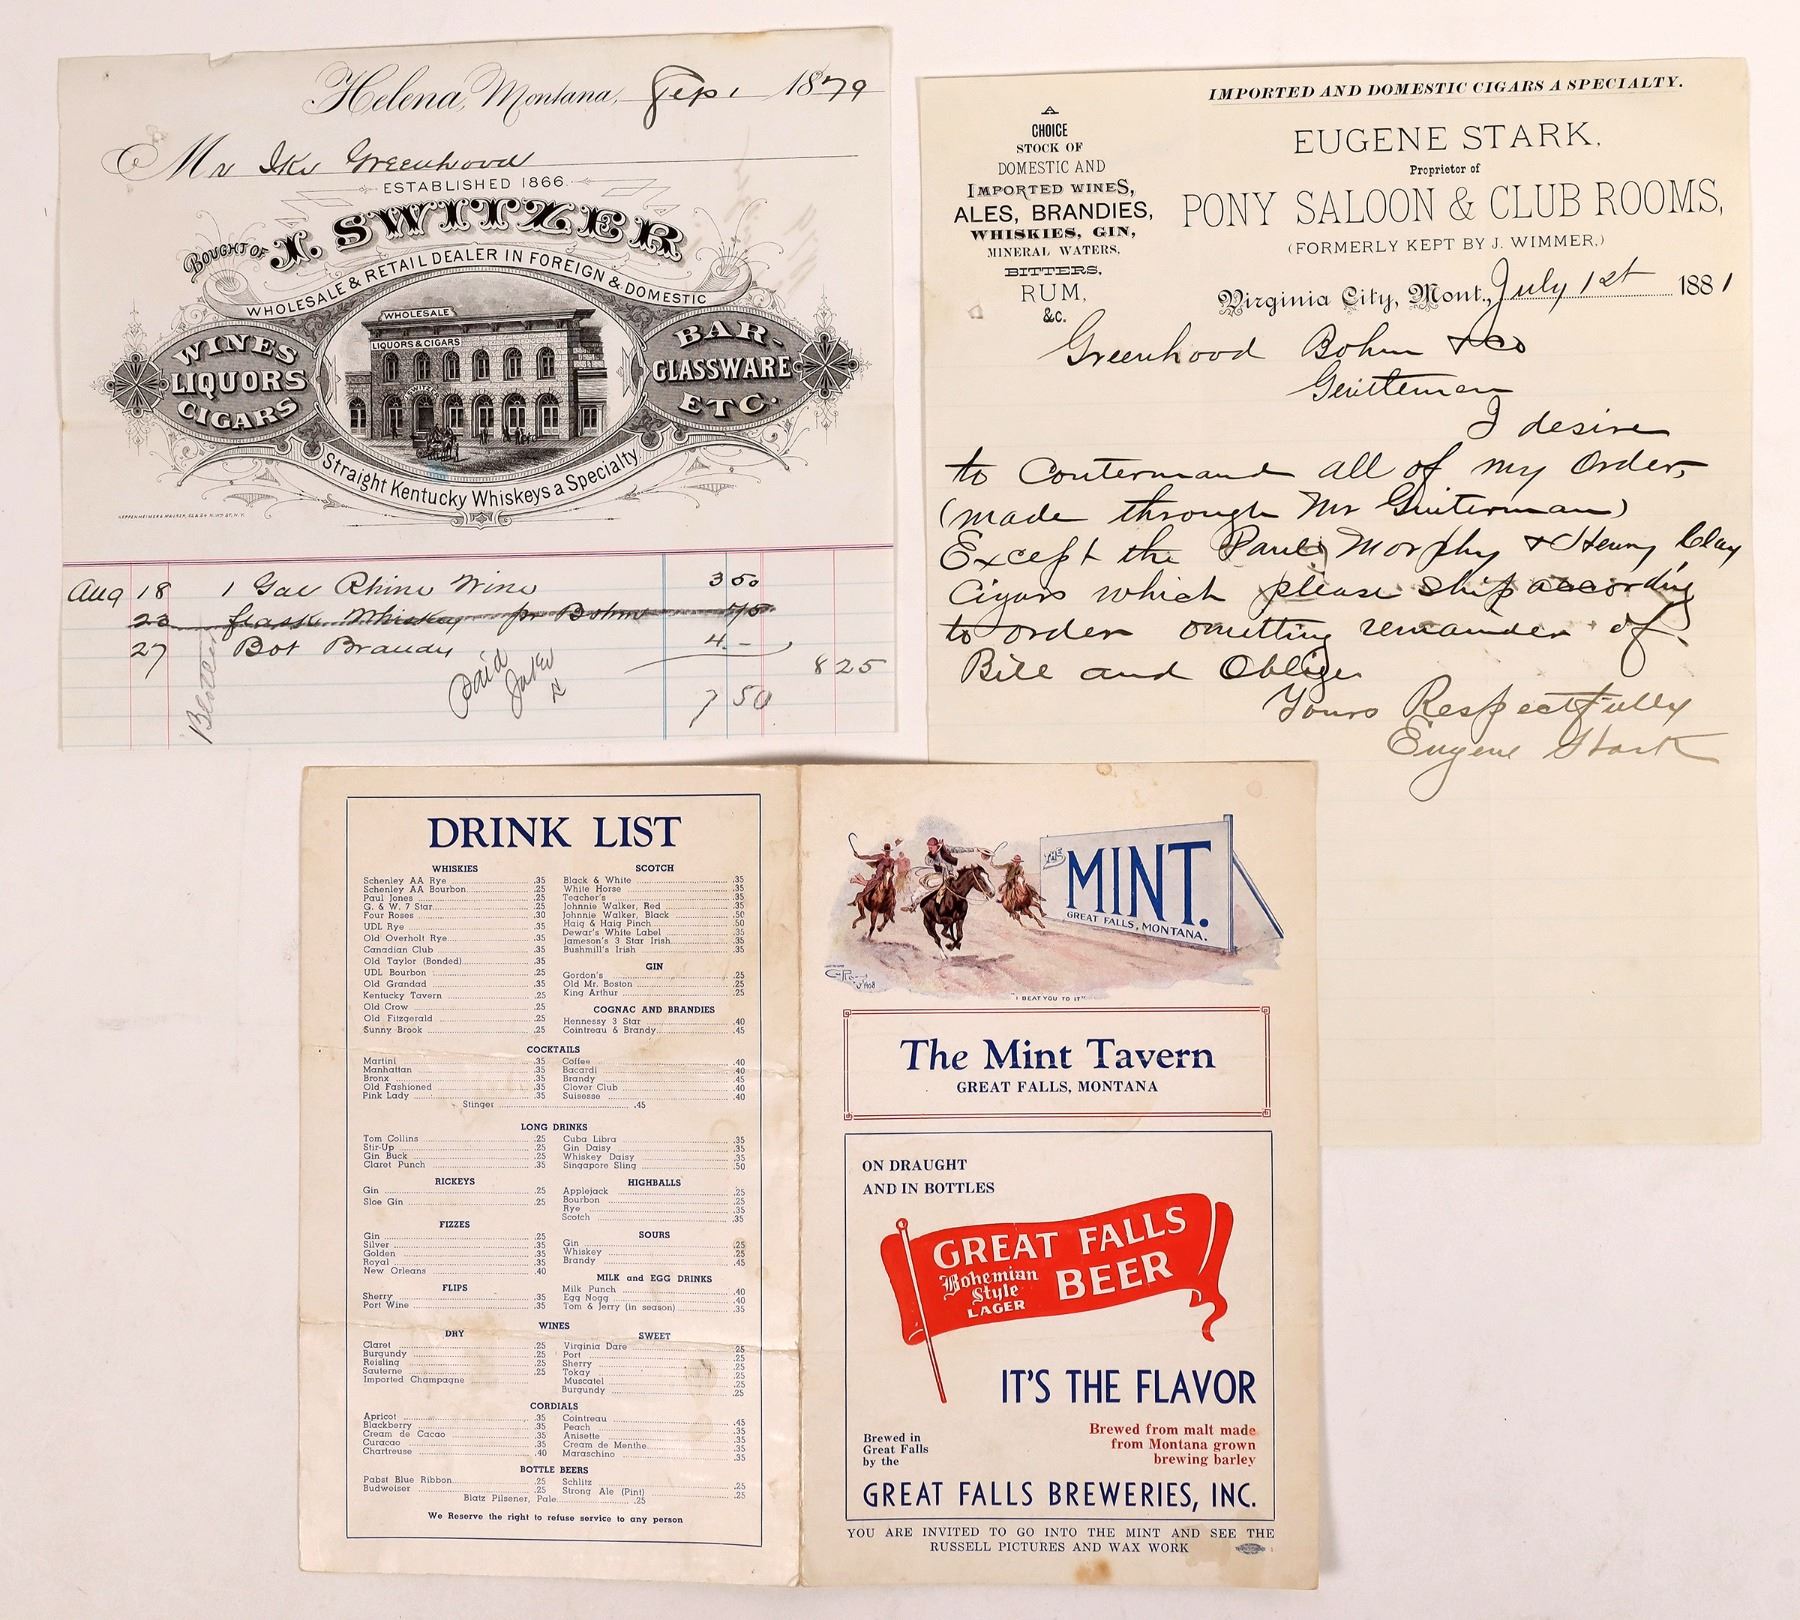 Helena, Montana, Sep 1 1879
Mr Ike Greenhood
ESTABLISHED 1866.
BOUGHT OF I. SWITZER
WHOLESALE & RETAIL DEALER IN FOREIGN & DOMESTIC
WINES
LIQUORS
CIGARS
WHOLESALE
LIQUORS & CIGARS
BAR-
GLASSWARE
ETC.
Straight Kentucky Whiskeys a Specialty
Aug 18 1 Gal Rhine Wine 3 50
23 flask Whiskey pr Bohm 75
27 Bot Brandy 4 -
8 25
paid
7 50
IMPORTED AND DOMESTIC CIGARS A SPECIALTY.
A
CHOICE
STOCK OF
DOMESTIC AND
IMPORTED WINES,
ALES, BRANDIES,
WHISKIES, GIN,
MINERAL WATERS,
BITTERS,
RUM,
&c.
EUGENE STARK,
Proprietor of
PONY SALOON & CLUB ROOMS,
(FORMERLY KEPT BY J. WIMMER.)
Virginia City, Mont., July 1st 1881
Greenhood Bohm & Co
Gentlemen
I desire
to Contermand all of my Order,
(made through Mr Guiterman)
Except the Paul Morphy & Henry Clay
Cigars which please ship according
to order omitting remainder of
Bill and Oblige
Yours Respectfully
Eugene Stark
DRINK LIST
WHISKIES
Schenley AA Rye .35
Schenley AA Bourbon .25
Paul Jones .25
G. & W. 7 Star .25
Four Roses .30
UDL Rye .35
Old Overholt Rye .35
Canadian Club .35
Old Taylor (Bonded) .35
UDL Bourbon .25
Old Grandad .35
Kentucky Tavern .25
Old Crow .25
Old Fitzgerald .25
Sunny Brook .25
SCOTCH
Black & White .35
White Horse .35
Teacher's .35
Johnnie Walker, Red .35
Johnnie Walker, Black .50
Haig & Haig Pinch .50
Dewar's White Label .35
Jameson's 3 Star Irish .35
Bushmill's Irish .35
GIN
Gordon's .25
Old Mr. Boston .25
King Arthur .25
COGNAC AND BRANDIES
Hennessy 3 Star .40
Cointreau & Brandy .45
COCKTAILS
Martini .35
Manhattan .35
Bronx .35
Old Fashioned .35
Pink Lady .35
Coffee .40
Bacardi .40
Brandy .45
Clover Club .40
Suisesse .40
Stinger .45
LONG DRINKS
Tom Collins .25
Stir-Up .25
Gin Buck .25
Claret Punch .35
Cuba Libra .35
Gin Daisy .35
Whiskey Daisy .35
Singapore Sling .50
RICKEYS
Gin .25
Sloe Gin .25
HIGHBALLS
Applejack .25
Bourbon .25
Rye .35
Scotch .35
FIZZES
Gin .25
Silver .35
Golden .35
Royal .35
New Orleans .40
SOURS
Gin .25
Whiskey .25
Brandy .45
FLIPS
Sherry .35
Port Wine .35
MILK and EGG DRINKS
Milk Punch .40
Egg Nogg .40
Tom & Jerry (in season) .35
WINES
DRY
Claret .25
Burgundy .25
Reisling .25
Sauterne .25
Imported Champagne
SWEET
Virginia Dare .25
Port .25
Sherry .25
Tokay .25
Muscatel .25
Burgundy .25
CORDIALS
Apricot .35
Blackberry .35
Cream de Cacao .35
Curacao .35
Chartreuse .40
Cointreau .45
Peach .35
Anisette .35
Cream de Menthe .35
Maraschino .35
BOTTLE BEERS
Pabst Blue Ribbon .25
Budweiser .25
Schlitz .25
Strong Ale (Pint) .25
Blatz Pilsener, Pale .25
We Reserve the right to refuse service to any person
THE MINT.
GREAT FALLS, MONTANA.
"I BEAT YOU TO IT"
The Mint Tavern
GREAT FALLS, MONTANA
ON DRAUGHT
AND IN BOTTLES
GREAT FALLS
Bohemian
Style
LAGER
BEER
IT'S THE FLAVOR
Brewed in
Great Falls
by the
Brewed from malt made
from Montana grown
brewing barley
GREAT FALLS BREWERIES, INC.
YOU ARE INVITED TO GO INTO THE MINT AND SEE THE
RUSSELL PICTURES AND WAX WORK